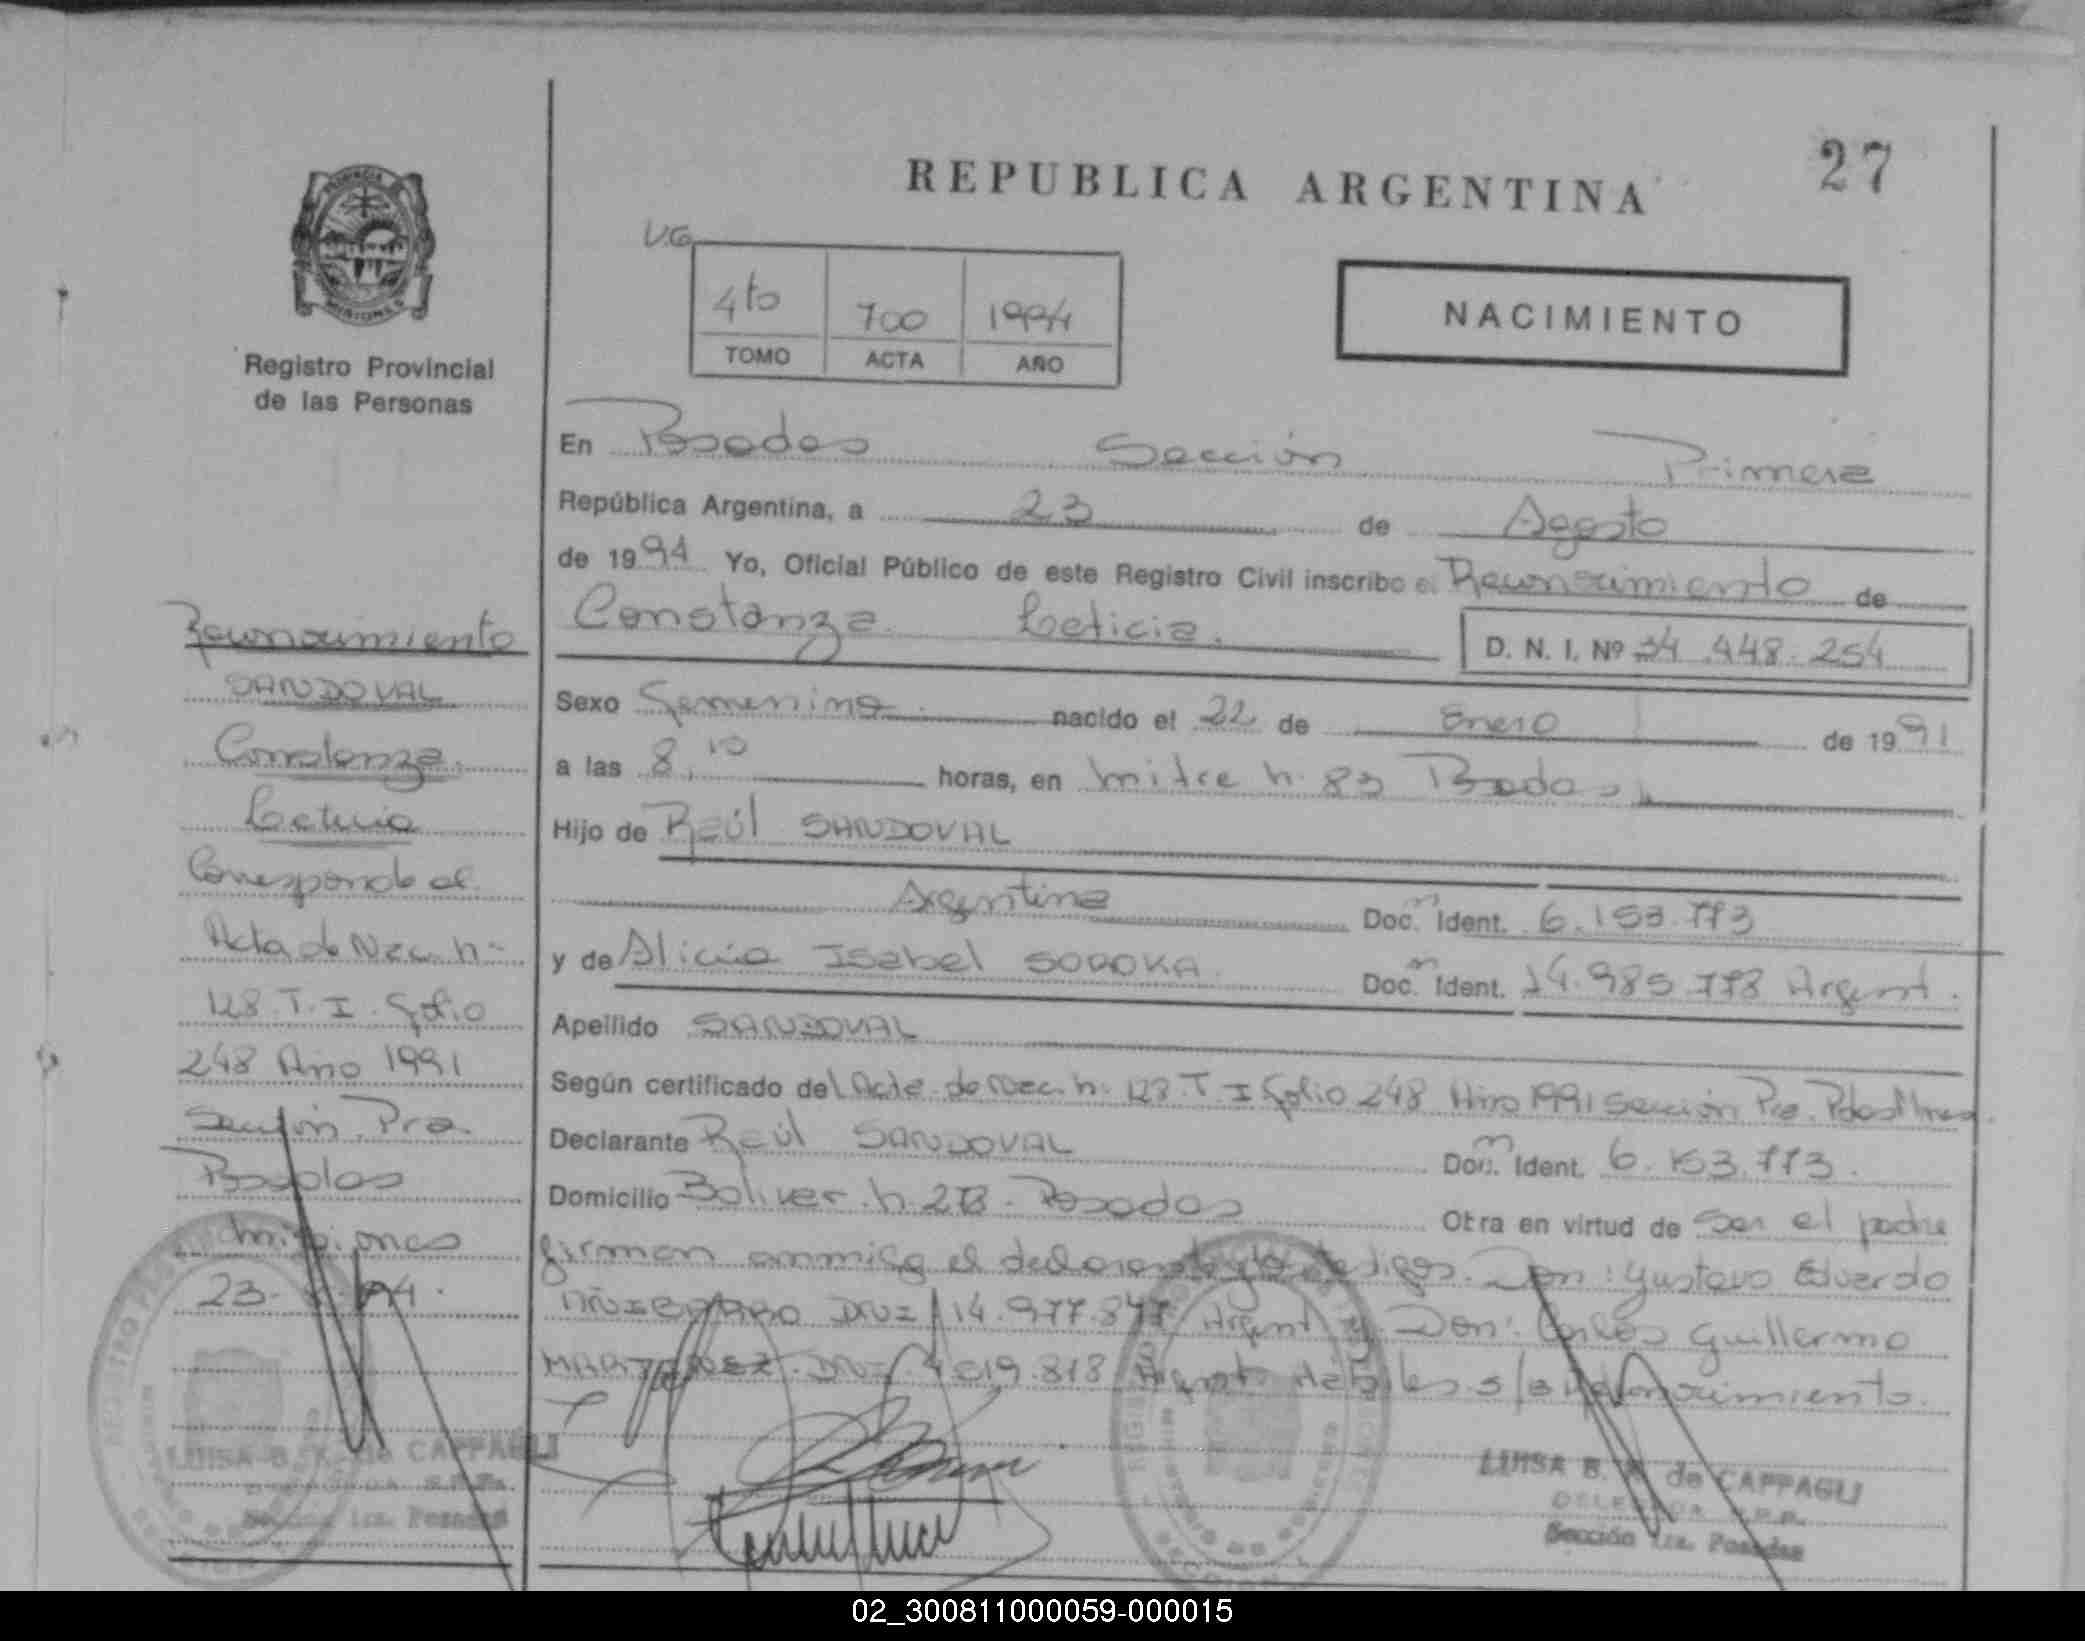 27
REPUBLICA ARGENTINA
V.G.
4to 700 1994
TOMO ACTA AÑO
NACIMIENTO
PROVINCIA
MISIONES
Registro Provincial
de las Personas
En Posadas Sección Primera
República Argentina, a 23 de Agosto
de 1994 Yo, Oficial Público de este Registro Civil inscribo el Reconocimiento de
Constanza Leticia. D. N. I. Nº 34.448.254
Sexo Femenino nacido el 22 de Enero de 1991
a las 8,10 horas, en Mitre n. 83 Posadas
Hijo de Raúl SANDOVAL
Argentina Doc. Ident. 6.153.773
y de Alicia Isabel SODOKA Doc. Ident. 14.985.778 Argent.
Apellido SANDOVAL
Según certificado del Acta de Nac. n. 128. T. I Folio 248 Año 1991 Sección Pra. Pdas Mnes
Declarante Raúl SANDOVAL Doc. Ident. 6.153.773.
Domicilio Bolivar n. Posadas Otra en virtud de Ser el padre
firman conmigo el declarante y los testigos. Don: Gustavo Eduardo
DNI 14.977.847 Argent y Don: Carlos Guillermo
MARTINEZ. DNI Argent. Hábiles s/ Reconocimiento.
Reconocimiento
SANDOVAL
Constanza
Leticia
Corresponde al
Acta de Nac. n-
128. T. I. Folio
248 Año 1991
Sección Pra
Posadas
Misiones
23-8-94.
LUISA B. K. de CAPPAGLI
DELEGADA R.P.P.
Sección 1ra. Posadas
LUISA B. K. de CAPPAGLI
DELEGADA R.P.P.
Sección 1ra. Posadas
02_300811000059-000015